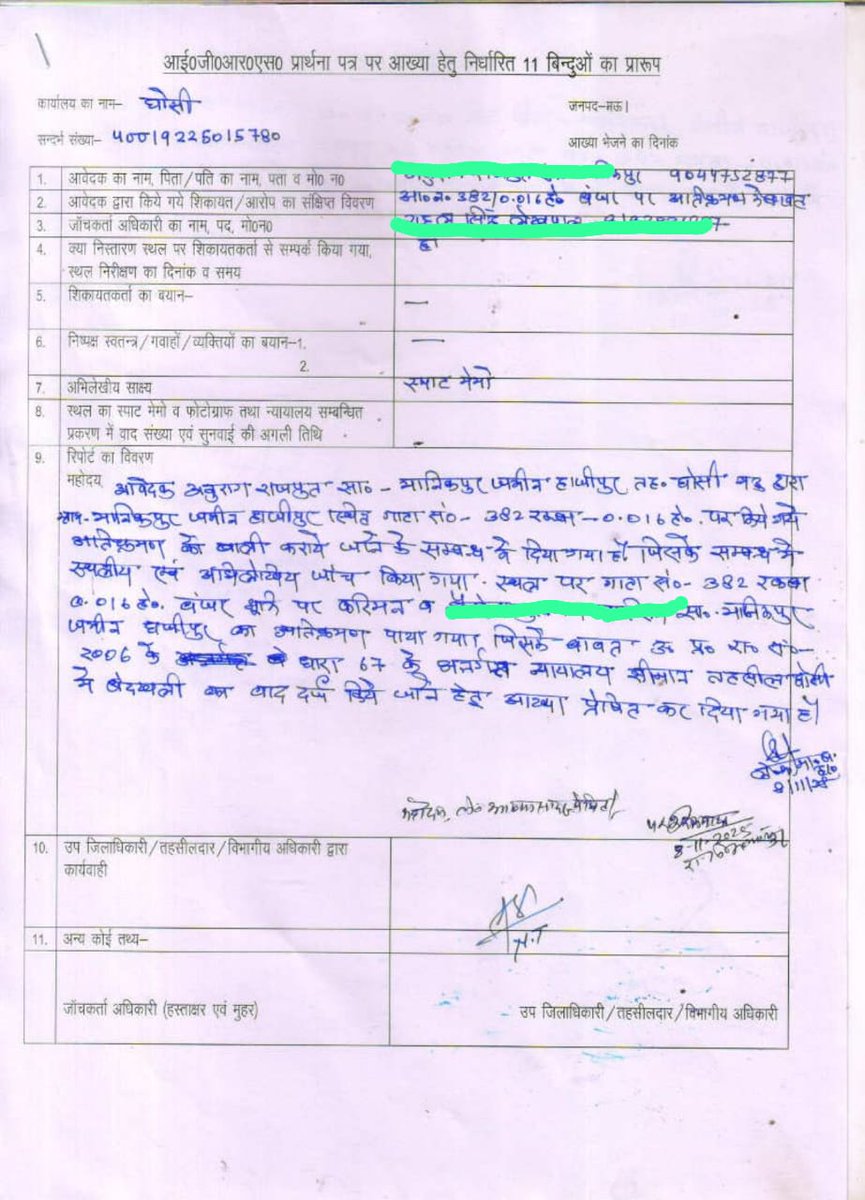 आई0जी0आर0एस0 प्रार्थना पत्र पर आख्या हेतु निर्धारित 11 बिन्दुओं का प्रारूप
कार्यालय का नाम– घोसी
जनपद–मऊ।
सन्दर्भ संख्या– 40019225015780
आख्या भेजने का दिनांक
1. आवेदक का नाम, पिता/पति का नाम, पता व मो0 न0 9044752877
2. आवेदक द्वारा किये गये शिकायत/आरोप का संक्षिप्त विवरण आ०न० 382/0.016हे० बंजर पर अतिक्रमण
3. जाँचकर्ता अधिकारी का नाम, पद, मो0न0
4. क्या निस्तारण स्थल पर शिकायतकर्ता से सम्पर्क किया गया, हां
स्थल निरीक्षण का दिनांक व समय
5. शिकायतकर्ता का बयान– —
6. निष्पक्ष स्वतन्त्र/गवाहों/व्यक्तियों का बयान–1. —
2.
7. अभिलेखीय साक्ष्य स्पाट मेमो
8. स्थल का स्पाट मेमो व फोटोग्राफ तथा न्यायालय सम्बन्धित
प्रकरण में वाद संख्या एवं सुनवाई की अगली तिथि
9. रिपोर्ट का विवरण
महोदय आवेदक अनुराग राजपूत सा०- मानिकपुर जमीन हाजीपुर तह० घोसी मऊ द्वारा
मानिकपुर जमीन हाजीपुर स्थित गाटा सं०- 382 रकबा - 0.016 हे०. पर किये गये
अतिक्रमण को खाली कराये जाने के सम्बन्ध में दिया गया है। जिसके सम्बन्ध में
स्थलीय एवं अभिलेखीय जांच किया गया. स्थल पर गाटा सं०- 382 रकबा
0.016हे०. बंजर भूमि पर करिमन व सा०. मानिकपुर
जमीन हाजीपुर का अतिक्रमण पाया गया। जिसके बावत उ० प्र० रा० सं०-
2006 के धारा 67 के अन्तर्गत न्यायालय श्रीमान तहसील घोसी
में बेदखली का वाद दर्ज किये जाने हेतु आख्या प्रेषित कर दिया गया है।
8/11/25
8-11-2025
10. उप जिलाधिकारी/तहसीलदार/विभागीय अधिकारी द्वारा
कार्यवाही
N.T
11. अन्य कोई तथ्य–
जाँचकर्ता अधिकारी (हस्ताक्षर एवं मुहर)
उप जिलाधिकारी/तहसीलदार/विभागीय अधिकारी